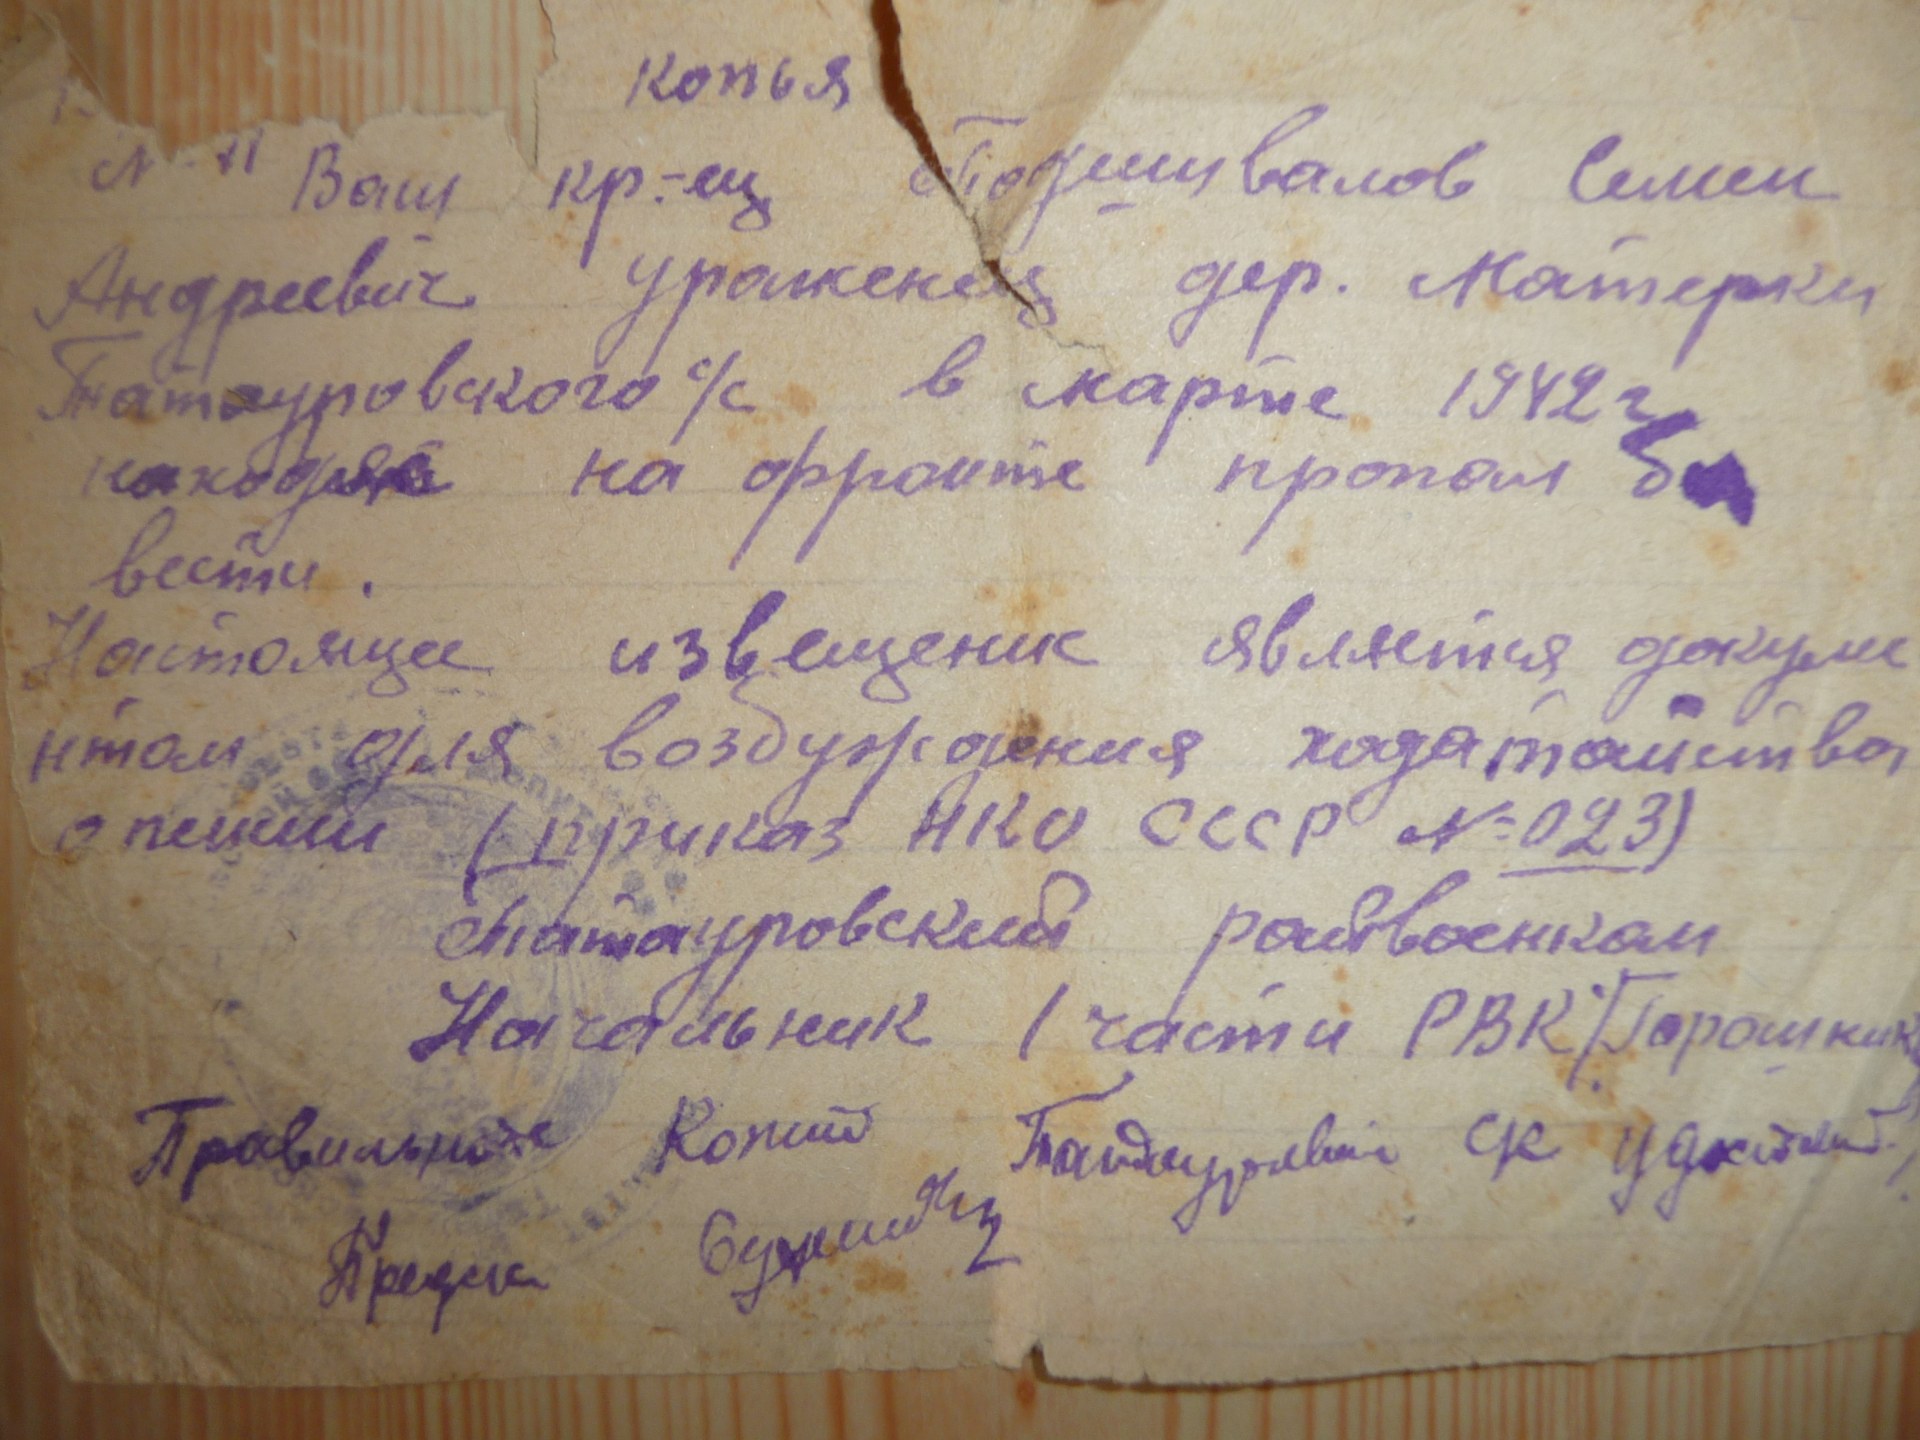 копья
Ваш кр-ец Подшивалов Семен
Андреевич уражениц дер. Матерки
Татауровского с/с в марте 1942 г
находяс на фронте пропал
вести.
Настоящие извещеник является докуме
нтом для возбуждения ходатайства
о пенсии (приказ НКО СССР № 023)
Татауровский райвоенком
Начальник 1 части РВК /Горошник
Правильность Копий Татауровский СК удост.
Предск